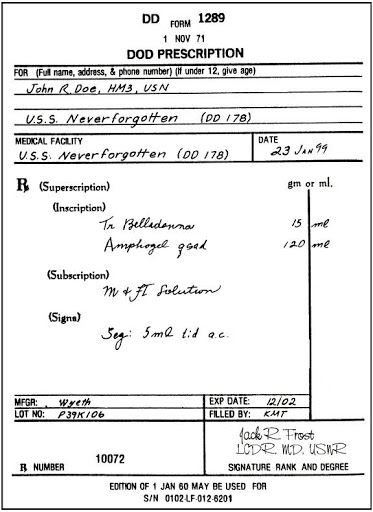 DD FORM 1289
1 NOV 71
DOD PRESCRIPTION
FOR (Full name, address, & phone number) (If under 12, give age)
John R. Doe, HM3, USN
U.S.S. Neverforgotten (DD 178)
MEDICAL FACILITY
U.S.S. Neverforgotten (DD 178)
DATE
23 JAN 99
℞ (Superscription) gm or ml.
(Inscription)
Tr Belladonna 15 ml
Amphogel qsad 120 ml
(Subscription)
M & ft Solution
(Signa)
Sig: 5ml tid a.c.
MFGR: Wyeth EXP DATE: 12/02
LOT NO: P39K106 FILLED BY: KMT
Jack R. Frost
LCDR, MD, USNR
10072
℞ NUMBER SIGNATURE RANK AND DEGREE
EDITION OF 1 JAN 60 MAY BE USED FOR
S/N 0102-LF-012-6201